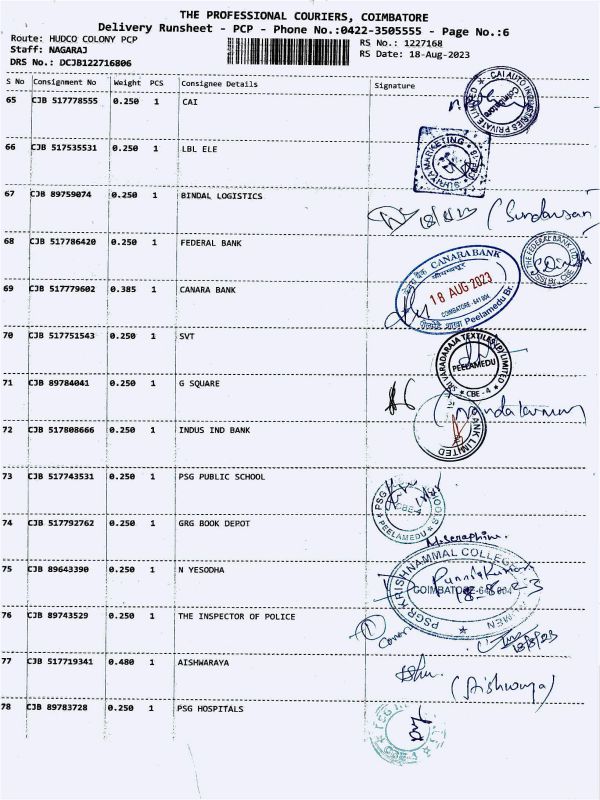 THE PROFESSIONAL COURIERS, COIMBATORE
Delivery Runsheet - PCP - Phone No.:0422-3505555 - Page No.:6
Route: HUDCO COLONY PCP
RS No.: 1227168
Staff: NAGARAJ
RS Date: 18-Aug-2023
DRS No.: DCJB122716806
S No Consignment No Weight PCS Consignee Details Signature
65 CJB 517778555 0.250 1 CAI
CAI AUTO INDUSTRIES PRIVATE LIMITED
Coimbatore
66 CJB 517535531 0.250 1 LBL ELE
MARKETING
67 CJB 89759074 0.250 1 BINDAL LOGISTICS
(Sundarsan)
68 CJB 517786420 0.250 1 FEDERAL BANK
THE FEDERAL BANK LTD
CBE
69 CJB 517779602 0.385 1 CANARA BANK
CANARA BANK
18 AUG 2023
COIMBATORE - 641 004
Peelamedu Br.
70 CJB 517751543 0.250 1 SVT
SRI VARADARAJA TEXTILES (P) LIMITED
PEELAMEDU
CBE - 4
71 CJB 89784041 0.250 1 G SQUARE
72 CJB 517808666 0.250 1 INDUS IND BANK
BANK LIMITED
73 CJB 517743531 0.250 1 PSG PUBLIC SCHOOL
PSG
CBE-4
PEELAMEDU
74 CJB 517792762 0.250 1 GRG BOOK DEPOT
75 CJB 89643390 0.250 1 N YESODHA
PSGR KRISHNAMMAL COLLEGE
COIMBATORE-641 004
18-8-23
76 CJB 89743529 0.250 1 THE INSPECTOR OF POLICE
1
18/8/23
77 CJB 517719341 0.480 1 AISHWARAYA
(Aishwarya)
78 CJB 89783728 0.250 1 PSG HOSPITALS
CBE-4